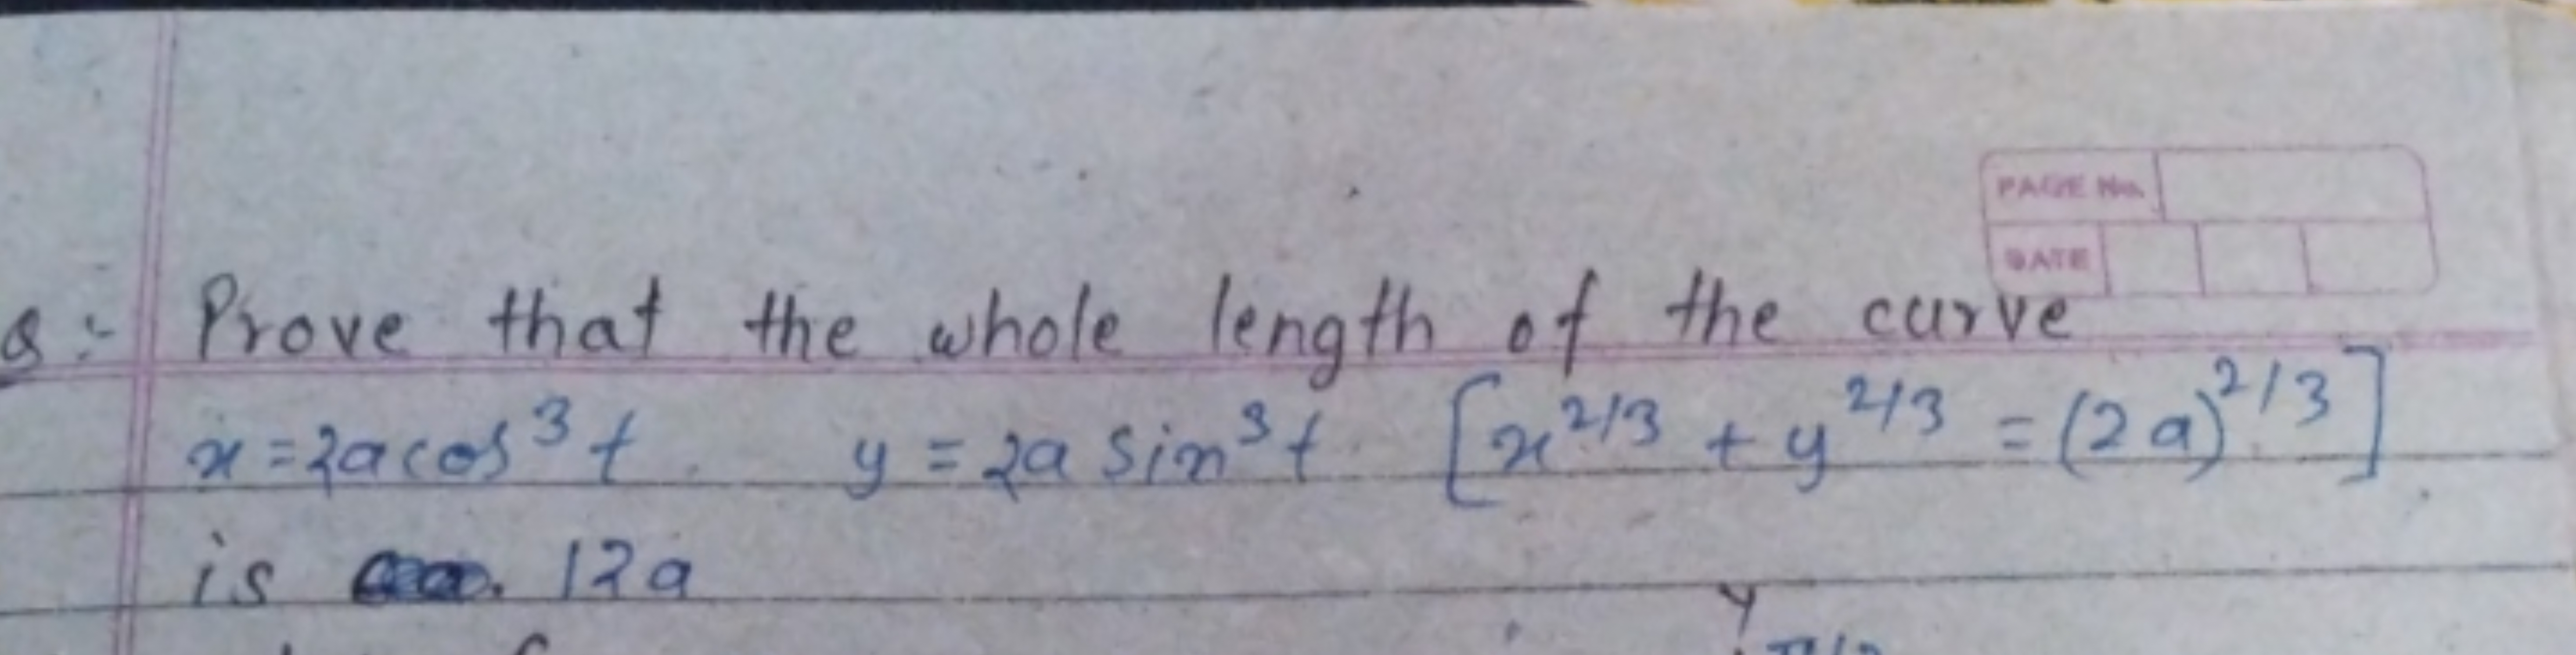 PAGE No.
DATE
Q:- Prove that the whole length of the curve
x = 2a cos³t. y = 2a sin³t. [x^2/3 + y^2/3 = (2a)^2/3]
is 12a
y
π/2